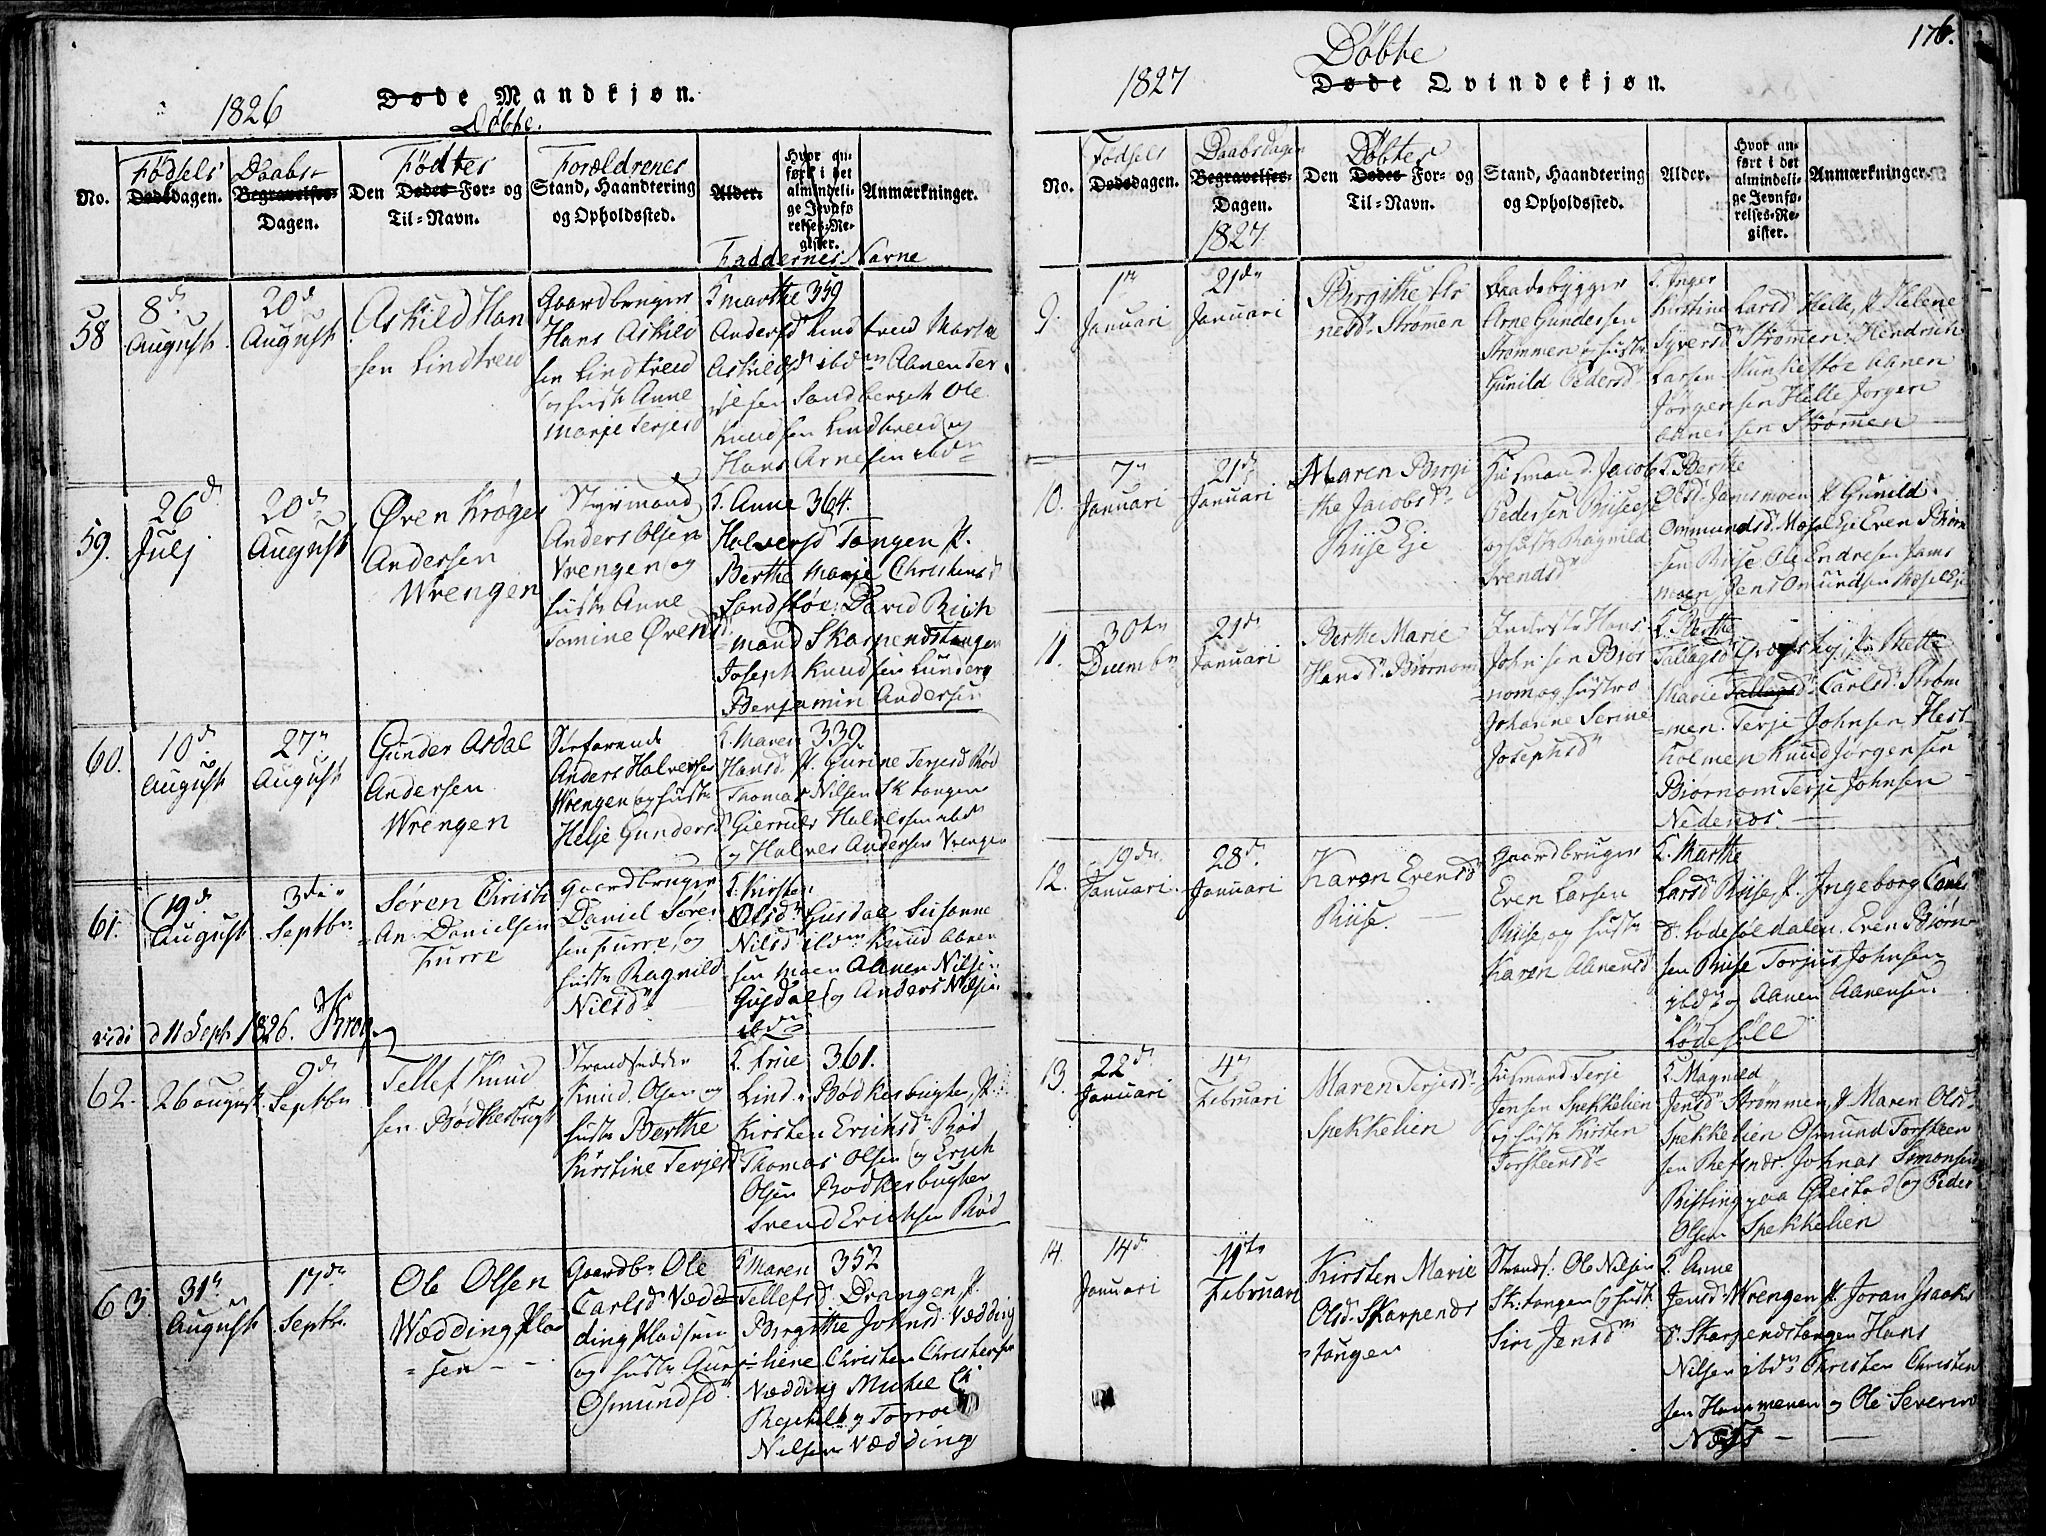 1826
Døde Mandkjøn.
Døbte.
No.
Fødsels
Dødsdagen.
Daabs-
Begravelses-
Dagen.
Den
Fødtes
Dødes For- og
Til-Navn.
Forældrenes
Stand, Haandtering
og Opholdssted.
Alder.
Hvor an-
ført i det
almindeli-
ge Jevnfø-
relses-Re-
gister.
Anmærkninger.
Faddernes Navne
58
8d
August
20d
August
Askild Han
sen Lindtveid
Gaardbruger
Hans Askild
sen Lindtveid
og hustr Anne
Marje Terjesd
K Marthe 359
Andersd Lindtveid Marthe
Askildsd ibdm Aanen Ter
jesen Sandberget Ole
Knudsen Lindtveid og
Hans Arnesen ibdm
59.
26d
Julj
20d
August
Øven Krøger
Andersen
Wrengen
Styrmand
Anders Olsen
Vrengen og
hustr Anne
Tomine Øvensd
K. Anne 364.
Halversd Tangen P.
Berthe Marje Christensd
Sandstøe. David Rich
mand Skarpenstangen
Joseph Knudsen
Benjamin Andersen
60.
10d
August
27n
August
Gunder Asdal
Andersen
Wrengen
Søefarende
Anders Halversen
Wrengen og hustr
Helje Gundersd
K. Maren 339
Hansd P. Gurine Terjesd Rød
Thomas Nilsen Sk tangen
Halversen ibd
og Halver Andersen Vrengen
61.
19d
August
3die
Septbr
Søren Christi
an Danielsen
Furre
Gaardbruger
Daniel Søren
sen Furre, og
hustr Ragnild
Nilsd
K. Kirsten
Olsd Gusdal Susanne
Nilsd ibdm Knud Aanen
sen Moen Aanen Nilsen
Gusdal og Anders Nilsen
ibdm
vidi d 11 Septr 1826. Krog
62.
26 August
9d
Septbr
Tellef Knud
sen Bødkerbugt
Strandsidder
Knud Olsen og
hustr Berthe
Kirstine Terjesd
K. 361.
Lind Bødkerbugten, P.
Kirsten Erichsd Rød
Thomas Olsen og Erich
Olsen Bødkerbugten
Svend Erichsen Rød
63.
31n
August
17de
Septbr
Ole Olsen
Wædding Pla
sen
Gaardbr Ole
Carlsd Væd
ding Pladsen
og hustr Guro
Osmundsd
K Maren 352
Tellefsd Drangen P.
Birgithe Johnsd Vædding
hiene Christen Christensen
Vædding Michel
og Torvor
Nilsen Vædding
176.
1827
Døbte
Døde Qvindekjøn.
No.
Fødsels
Dødsdagen.
Daabsdagen
Begravelses-
Dagen.
1827
Den
Døbtes
Dødes For- og
Til-Navn.
Stand, Haandtering
og Opholdssted.
Alder.
Hvor an-
ført i det
almindeli-
ge Jevnfø-
relses-Re-
gister.
Anmærkninger.
9.
1n
Januari
21de
Januari
Birgithe Ar
nesd Strømen
Baadebygger
Arne Gundersen
Strømmen og hustr
Gunild Pedersd
K. Inger
Kirstine Larsd Helle, P. Helene
Syversd Strømen Hendrich
Larsen Munkestøe Aanen
Jørgensen Helle Jørgen
Aanesen Strømen
10.
7n
Januari
21d
Januari
Maren Birgi
the Jacobsd
Riise Eje
Husmand Jacob
Pedersen Riiseeje
og hustr Ragnild
Svendsd
K. Berthe
Olsd Jomsmoen P. Gunild
Ommundsd Mosel Eje Even Biørn
sen Riise Ole Endresen Joms
moen Jens Omundsen Mosel Eje
11.
30te
Decembr
21de
Januari
Berthe Marie
Hansd Biørnom
Inderste Hans
Johnsen Biør
nom og hustro
Johanne Serine
Josephsd
K. Berthe
Tallagsd P. Mette
Marie Tallagsd Carlsd Strøm
men. Terje Johnsen Hest
holmen Knud Jørgensen
Biørnom Terje Johnsen
Nedenes.
12.
19de
Januari.
28d
Januari
Karen Evensd
Riise.
Gaardbruger
Even Larsen
Riise, og hustr
Karen Aanensd
K. Marthe
Larsd Riise, P. Ingeborg Carls
d. Lodesøldalen. Even Biørn
sen Riise Torjus Johnsen
ibdm og Aanen Aanensen
Lødesøll
13.
22d
Januari
4n
Februari
Maren Terjesd
Spekkelien
Husmand Terje
Jensen Spekkelien
og hustr Kirsten
Torsteensd
K. Magnild
Jensd Strømmen, P. Maren Olsd
Spekkelien Osmund Torsteen
sen Refsnes. Johnas Simonsen
Risting paa Øiestad og Peder
Olsen Spekkelien
14.
14d
Januari
11te
Februari
Kirsten Marie
Olsd. Skarpends
tangen
Strands. Ole Nilsen
Sk: tangen og hustr
Siri Jensd
K. Anne
Jensd. Wrengen P. Joran Isachs
d. Skarpendstangen Hans
Nilsen ibdm Christen Christen
sen Hammeren og Ole Severin
Næss